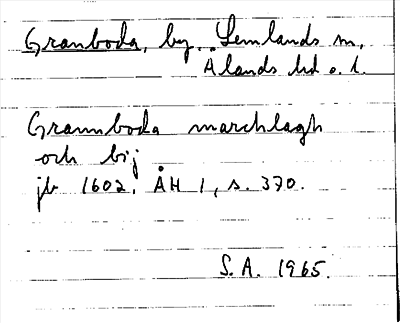 Granboda, by, Lemlands sn,
Ålands hd o. l.
Grannboda marchlagh
och bij
jb 1602. ÅH 1, s. 370.
S.A. 1965.